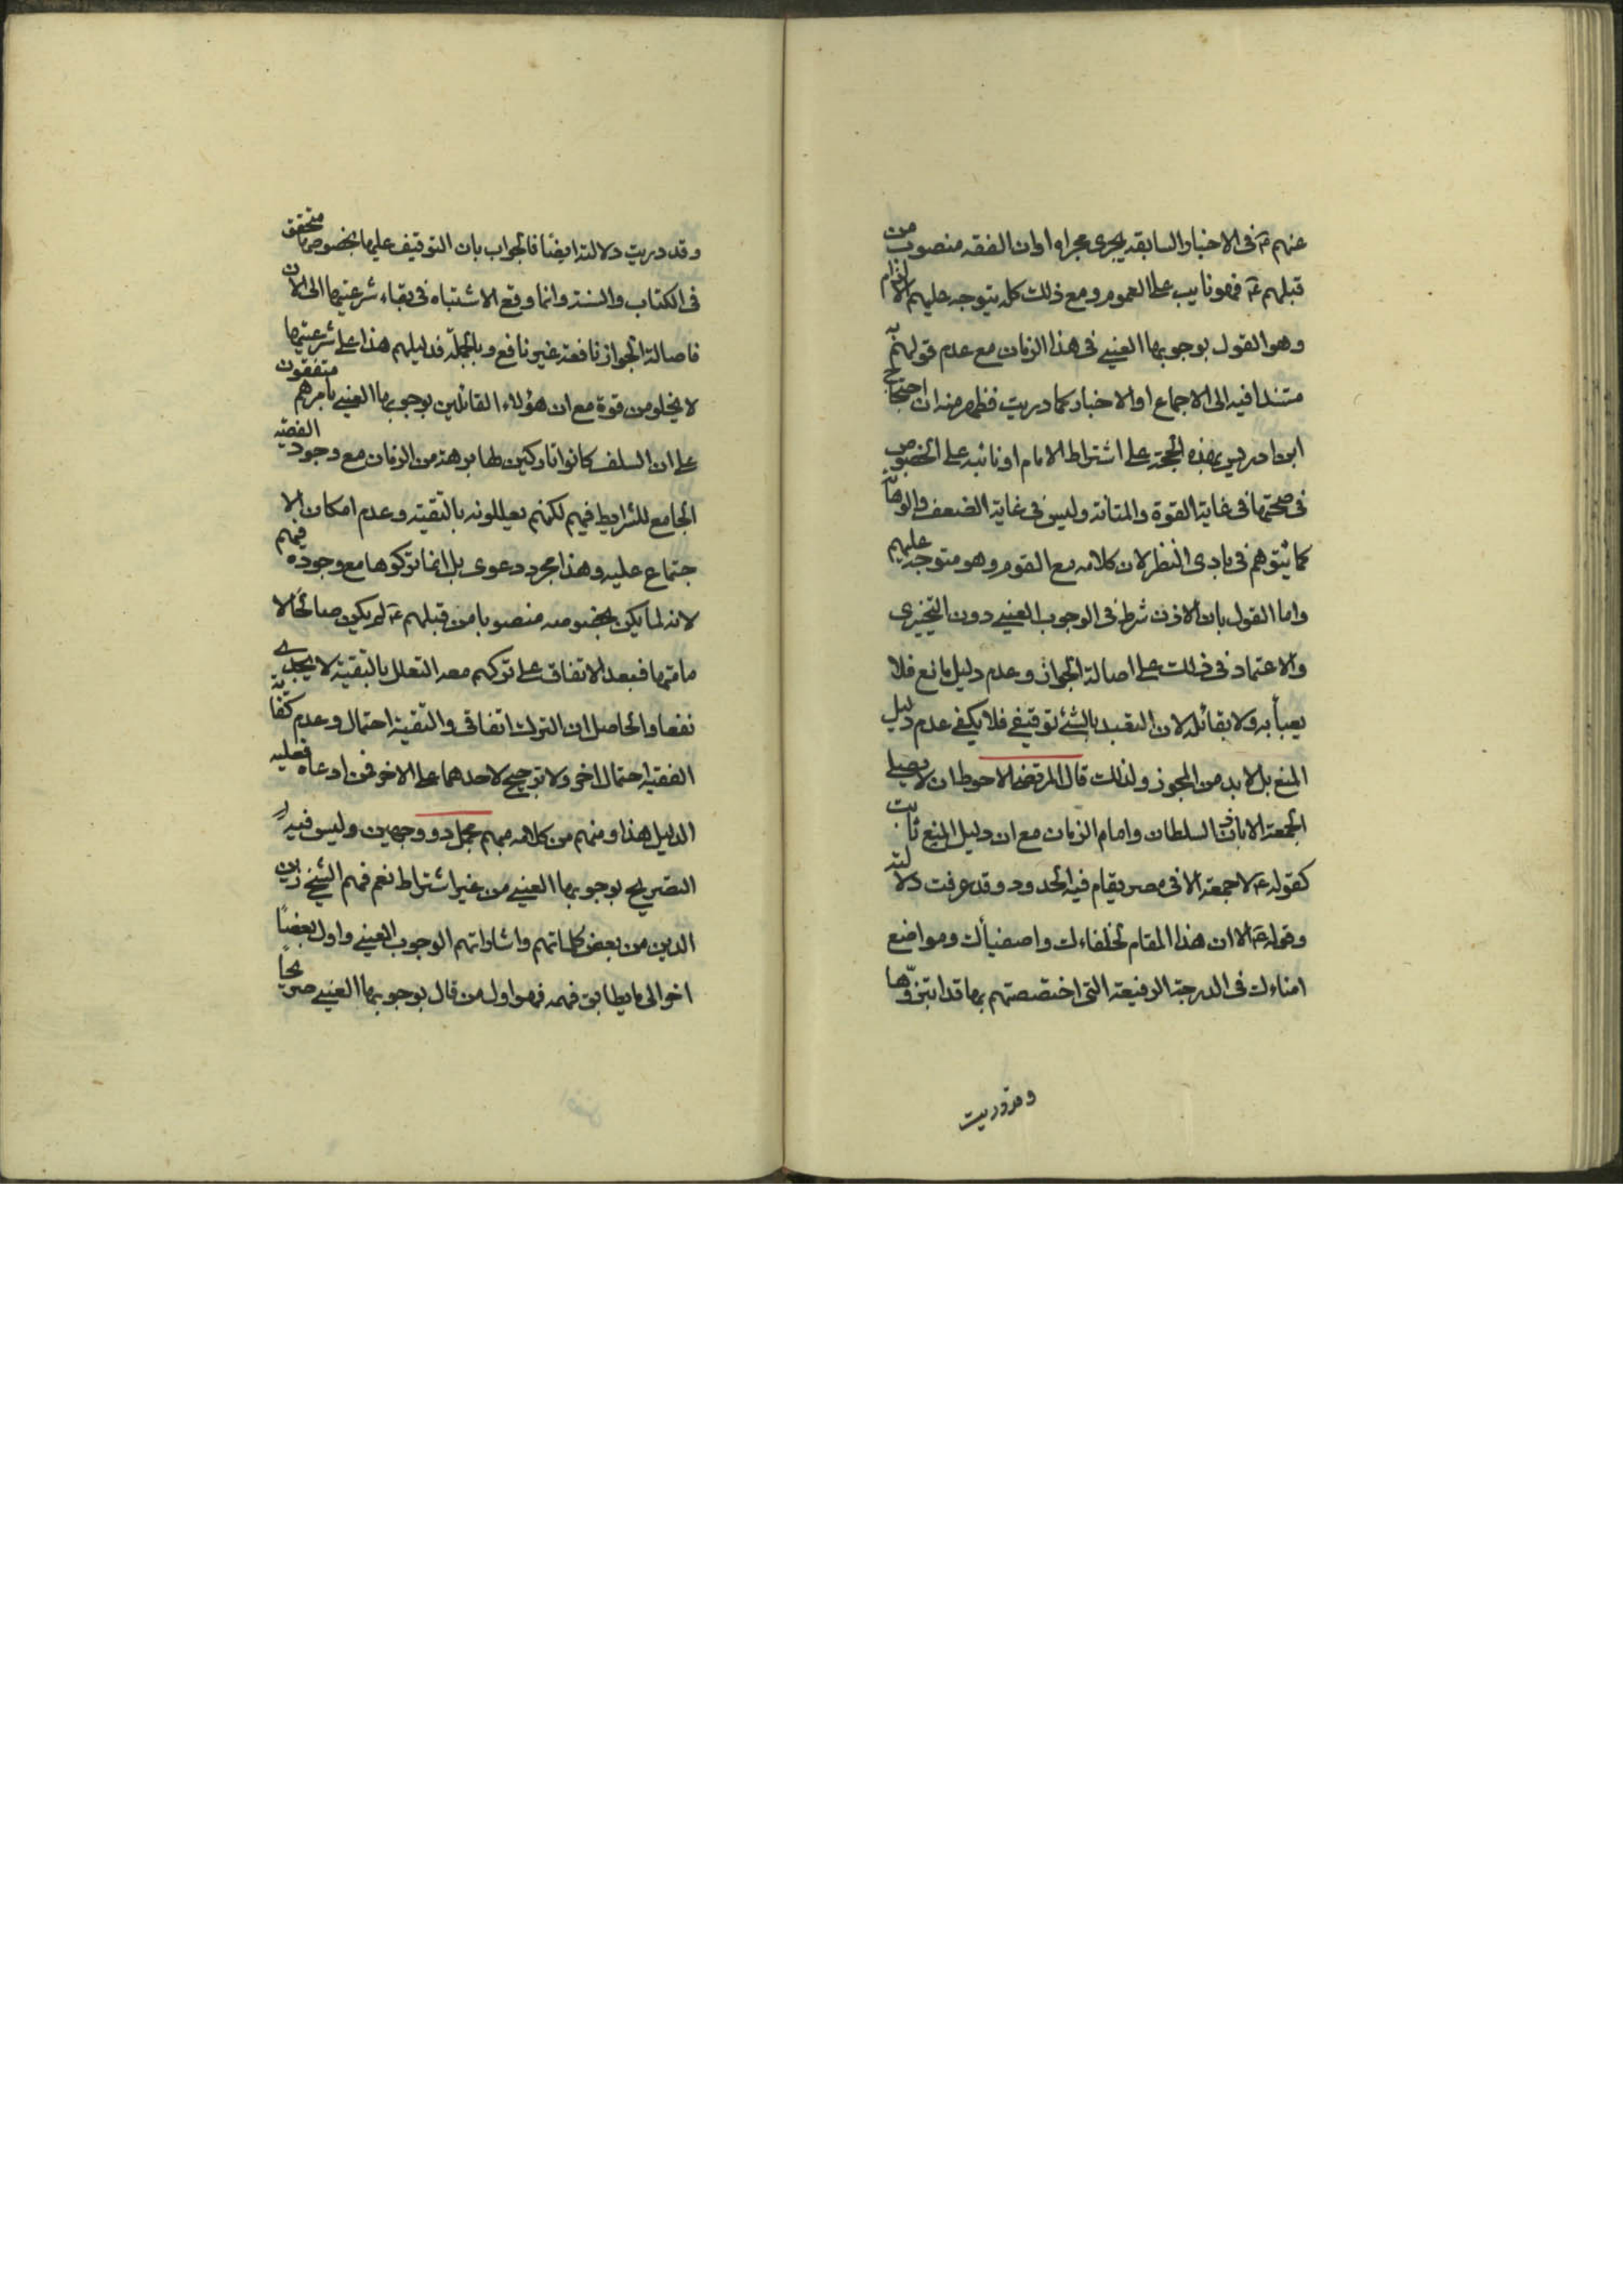 عنهم ع في الاخبار السابقه يجرى مجراه اوان الفقه منصوب من
قبلهم ع فهو نايب على العموم ومع ذلك كله يتوجه عليهم الالزام
وهو القول بوجوبها العينى في هذا الزمان مع عدم قولهم به
مستندا فيه الى الاجماع او الاخبار كما دريت فظهر منه ان احتجاج
ابن ادريس بهذه الحجة على اشتراط الامام او نائبه على الخصوص
في صحتها في غاية القوة والمتانة وليس في غاية الضعف والوهن
كما يتوهم في بادى النظر لان كلامه مع القوم وهو متوجه عليهم
واما القول بان الاذن شرط في الوجوب العينى دون التخييرى
والاعتماد في ذلك على اصالة الجواز وعدم دليل مانع فلا
يعبأ به ولا بقائله لان التعبد بالشئ توقيفي فلا يكفي عدم دليل
المنع بل لا بد من المجوز ولذلك قال المرتضى الاحوط ان لا يصلى
الجمعة الا باذن السلطان وامام الزمان مع ان دليل المنع ثابت
كقوله ع لا جمعة الا في مصر يقام فيه الحدود وقد عرفت دلالته
وقوله ع الا ان هذا المقام لخلفاءك واصفيائك ومواضع
امناءك في الدرجة الرفيعة التى اختصصتهم بها قد ابتزوها
وقد دريت
وقد دريت دلالته ايضا فالجواب بان التوقيف عليها بخصوصها متحقق
في الكتاب والسنة وانما وقع الاشتباه في بقاء شرعيتها الى الان
فاصالة الجواز نافعة غير نافع وبالجملة فدليلهم هذا على شرعيتها
لا يخلو من قوة مع ان هؤلاء القائلين بوجوبها العينى باسرهم متفقون
على ان السلف كانوا تاركين لها برهة من الزمان مع وجود الفقيه
الجامع للشرايط فيهم لكنهم يعللونه بالتقية وعدم امكان الا
جتماع عليه وهذا مجرد دعوى بل انما تركوها مع وجوده فيهم
لانه لما يكن بخصوصه منصوبا من قبلهم ع لم يكن صالحا لا
مامتها فبعد الاتفاق على تركهم معه التعلل بالتقية لا يجدى
نفعا والحاصل ان الترك اتفاقى والتقية احتمال وعدم كفاية
الفقيه احتمال اخر ولا ترجيح لاحدهما على الاخر فمن ادعاه فعليه
الدليل هذا ومنهم من كلامه مبهم مجمل ذو وجهين وليس فيه
التصريح بوجوبها العينى من غير اشتراط نعم فهم الشيخ زين
الدين من بعض كلماتهم واشاراتهم الوجوب العينى واول بعضا
اخر الى ما يطابق فهمه فهو اول من قال بوجوبها العينى صريحا